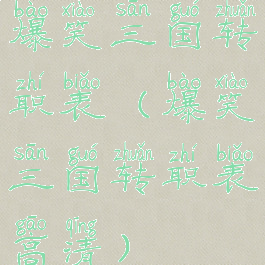 bào xiào sān guó zhuǎn
爆笑三国转
zhí biǎo bào xiào
职表（爆笑
sān guó zhuǎn zhí biǎo
三国转职表
gāo qīng
高清）